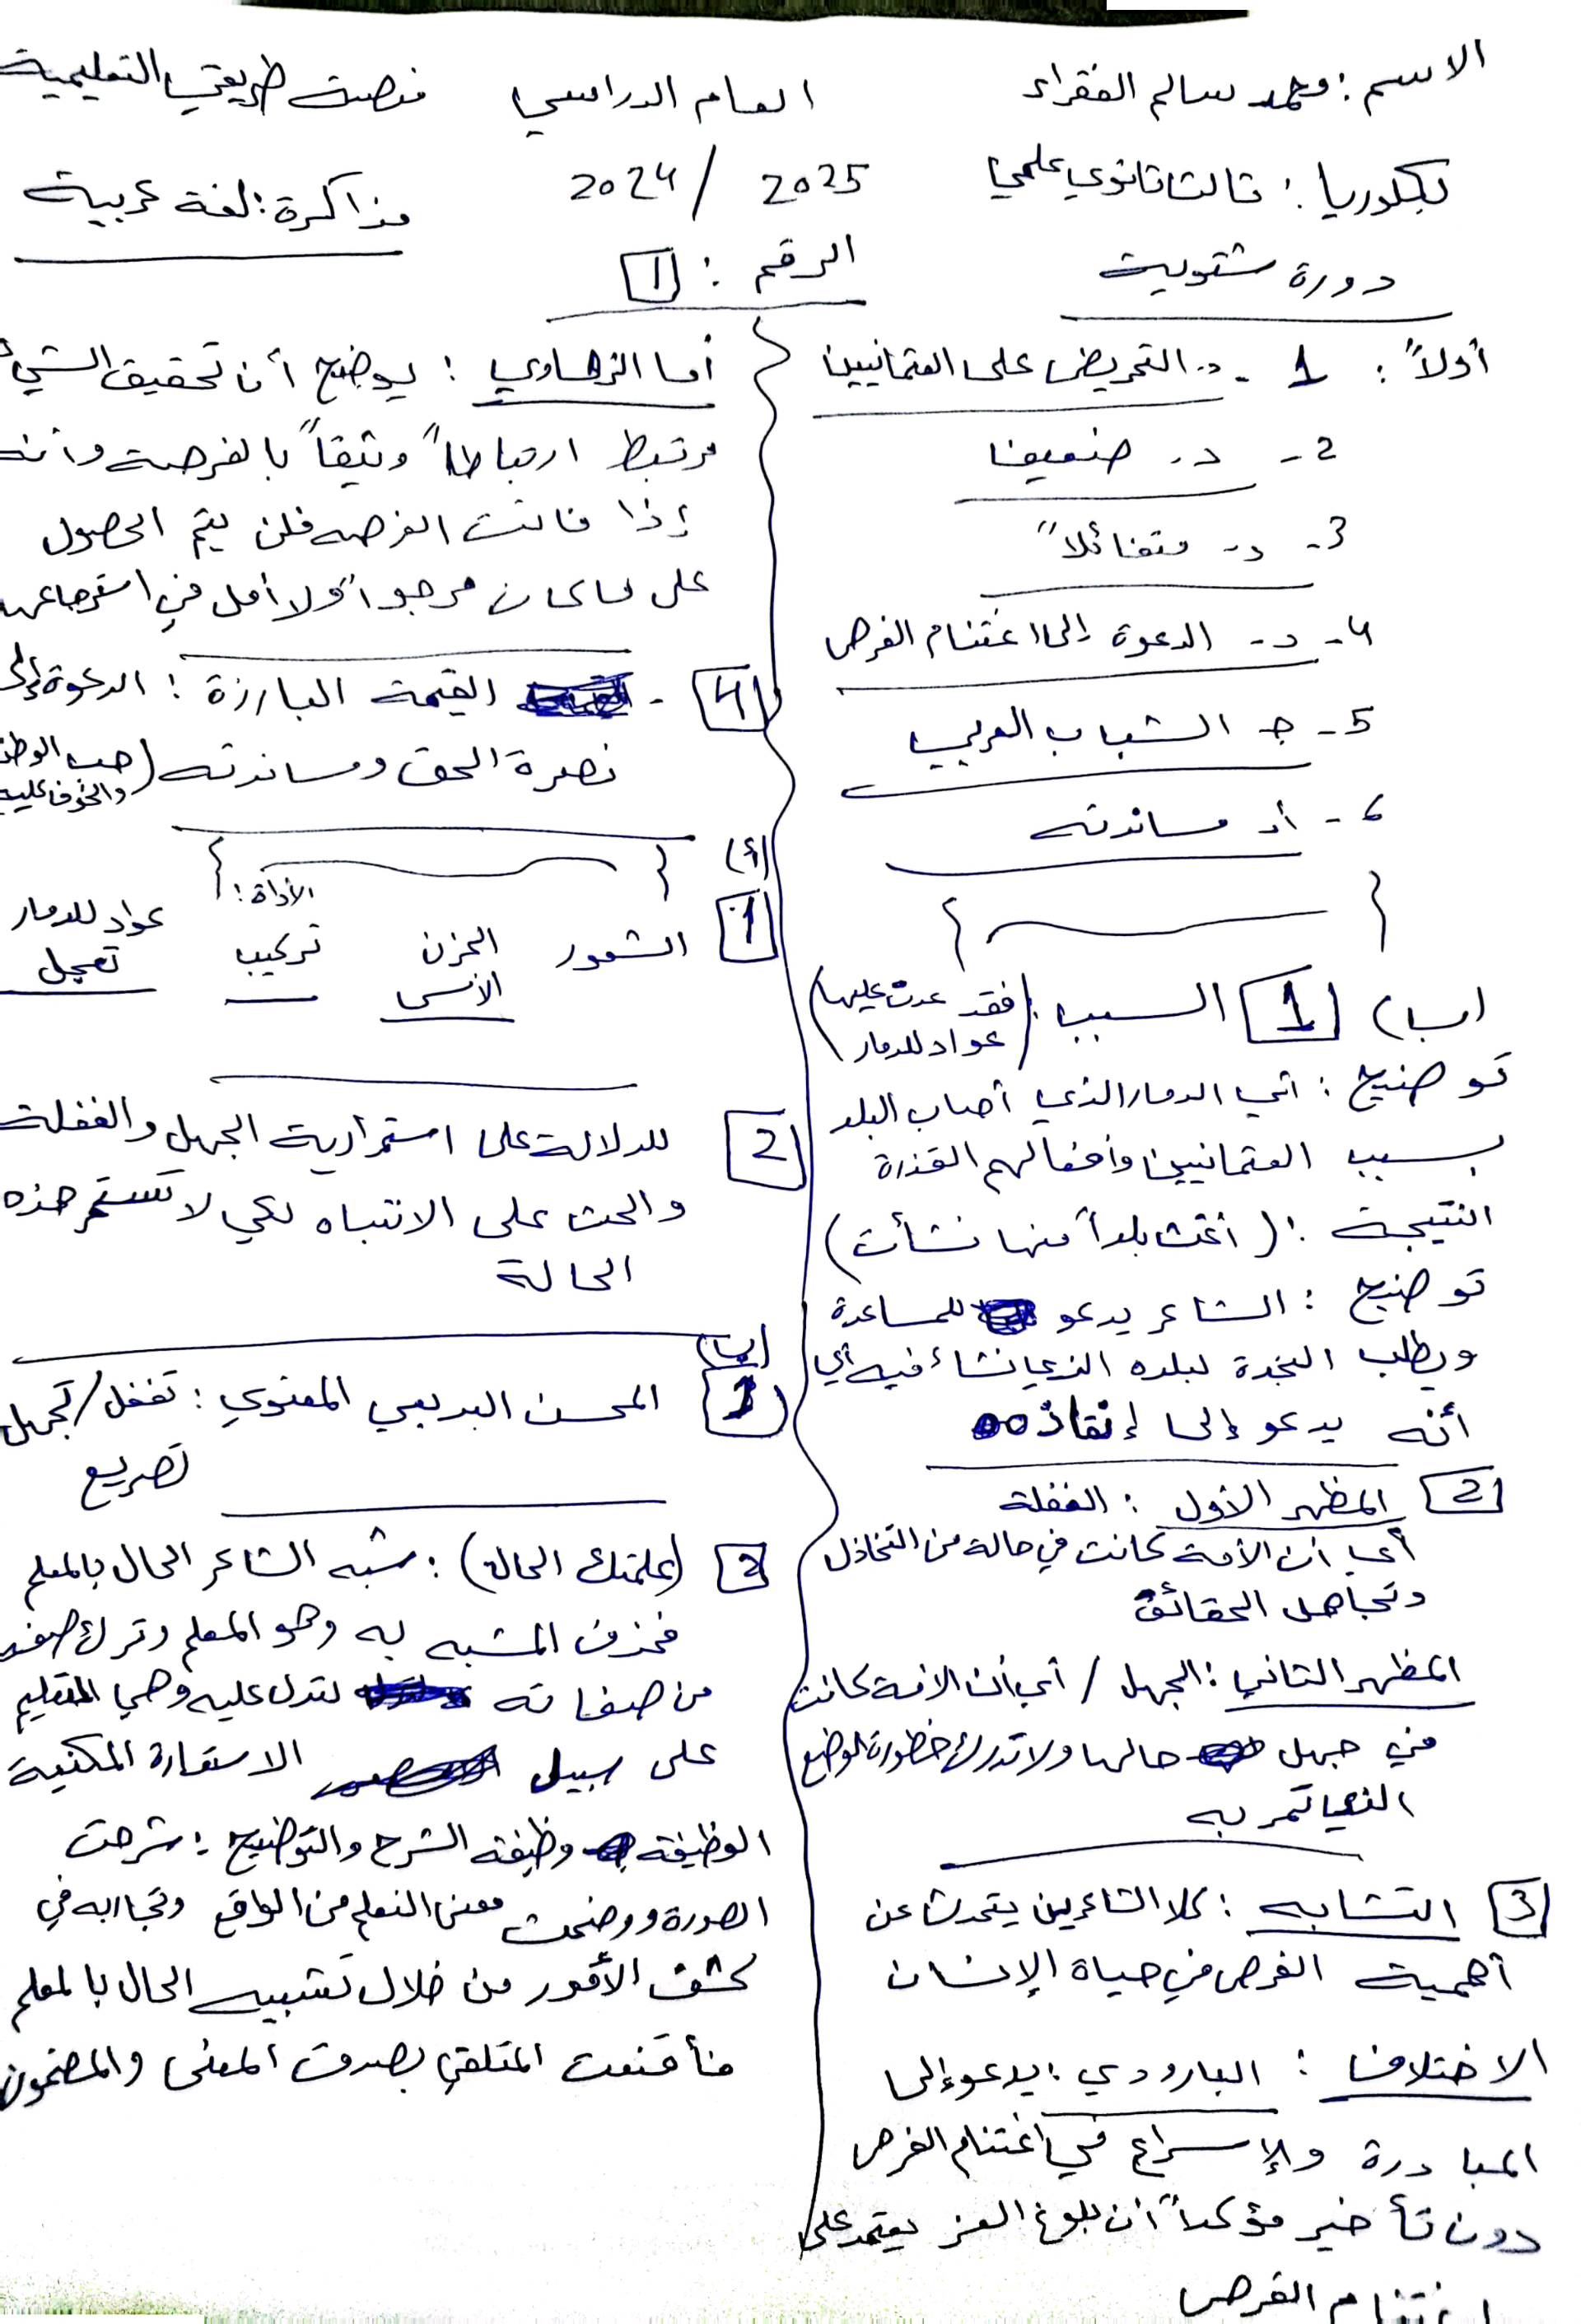 الاسم : محمد سالم الفقراء
العام الدراسي
منصة طريقتي التعليمية
بكلوريا : ثالث ثانوي علمي
2024 / 2025
مذاكرة : لغة عربية
دورة شتوية
الرقم : 1
أولاً : 1 - د. التحريض على العثمانيين
2 - د. ضعيف
3 - د. متفائلاً
4 - د. الدعوة إلى اغتنام الفرص
5 - جـ الشباب العربي
6 - أ. مساندته
(ب) 1 السبب : (فقد عدت عليها
عواد للدمار)
توضيح : أي الدمار الذي أصاب البلد
بسبب العثمانيين وأفعالهم القذرة
النتيجة : (أغث بلداً منها نشأت)
توضيح : الشاعر يدعو للمساعدة
ويطلب النجدة لبلده الذي نشاء فيه أي
أنه يدعو إلى إنقاذه
2 المظهر الأول : الغفلة
أي أن الأمة كانت في حالة من التخاذل
وتجاهل الحقائق
المظهر الثاني : الجهل / أي أن الامة كانت
في جهل حالها ولا تدرك خطورة الوضع
الذي تمر به
3 التشابه : كلا الشاعرين يتحدث عن
أهمية الفرص في حياة الإنسان
الاختلاف : البارودي : يدعو إلى
المبادرة والإسراع في اغتنام الفرص
دون تأخير مؤكداً أن بلوغ العز يعتمد على
اغتنام الفرص
أما الزهاوي : يوضح أن تحقيق الشيء
مرتبط ارتباطاً وثيقاً بالفرصة وأنه
إذا فاتت الفرصه فلن يتم الحصول
على ما كان مرجواً ولا أمل في استرجاعه
4 - القيمة البارزة : الدعوة إلى
نصرة الحق ومساندته (حب الوطن
والخوف عليه
(أ)
1 الشعور
الحزن
الأسى
الأداة :
تركيب
عواد للدمار
تعجل
2 للدلالة على استمرارية الجهل والغفلة
والحث على الانتباه لكي لا تستمر هذه
الحالة
(ب)
1 المحسن البديعي المعنوي : تغفل / تجهل
تصريع
2 (علمتك الحال) : شبه الشاعر الحال بالمعلم
فحذف المشبه به وهو المعلم وترك صفة
من صفاته لتدل عليه وهي التعليم
على سبيل الاستعارة المكنية
الوظيفة وظيفة الشرح والتوضيح : شرحت
الصورة ووضحت معنى التعلم من الواقع وتجاربه في
كشف الأمور من خلال تشبيه الحال بالمعلم
فأقنعت المتلقي بصدق المعنى والمضمون